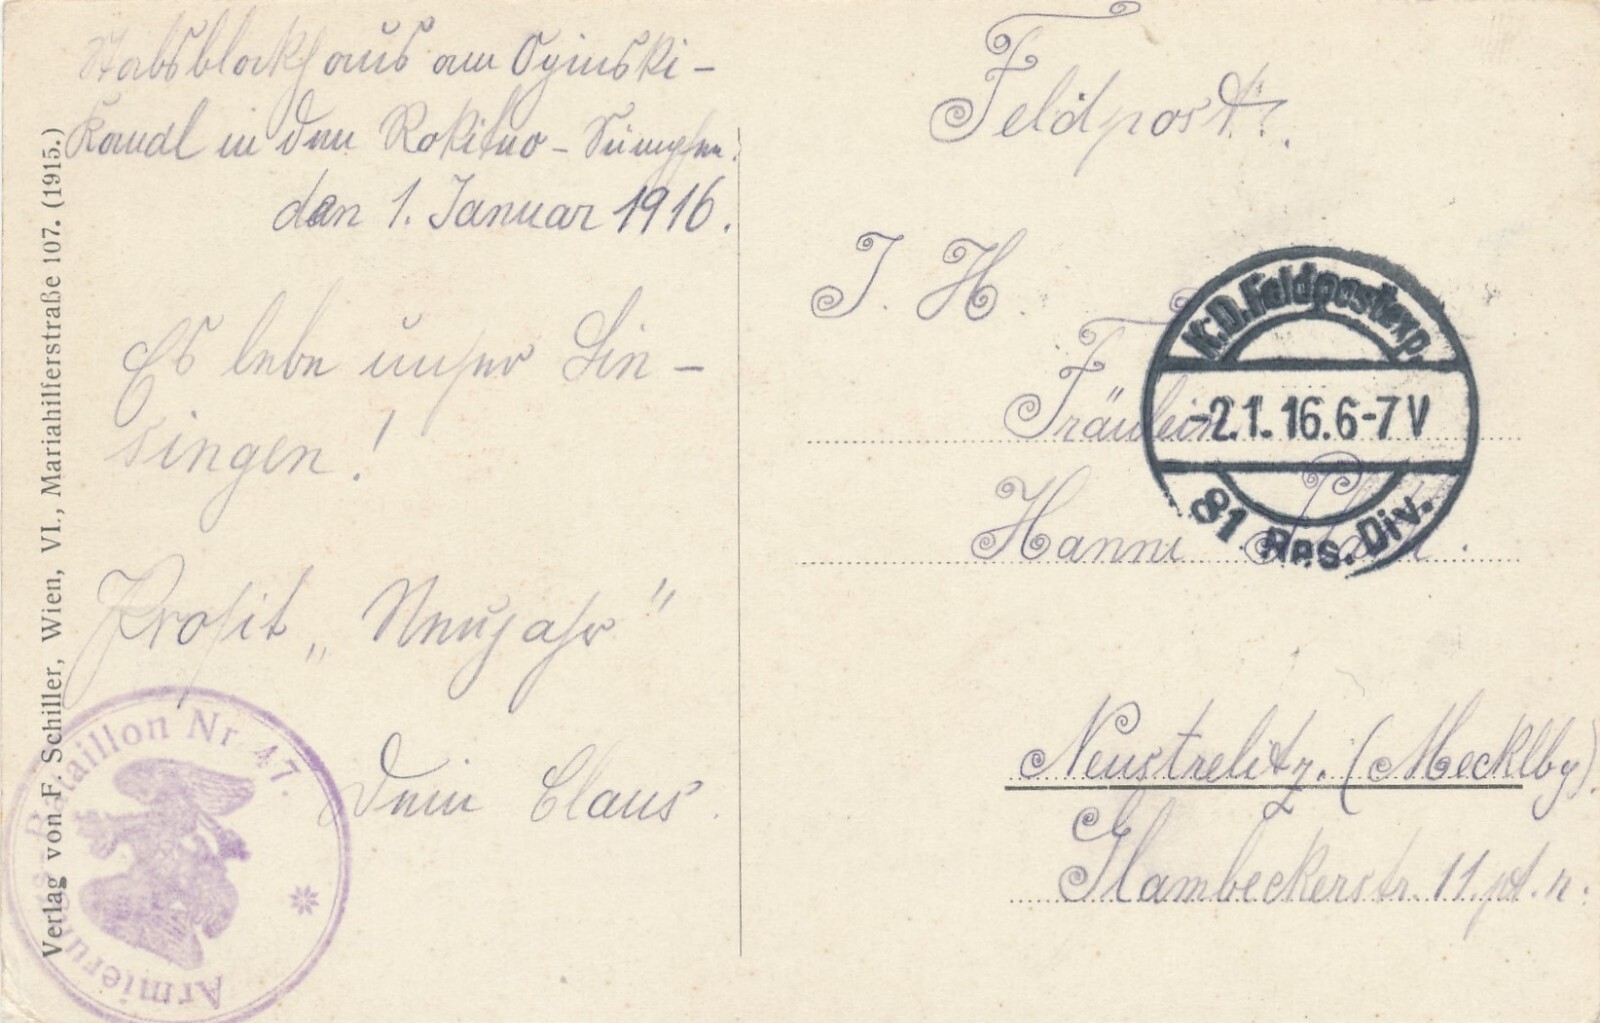 Stabsblockhaus am Oginski-
Kanal in den Rokitno-Sümpfen.
den 1. Januar 1916.
Es lebe unser Lin-
singen!
Prosit „Neujahr"
Dein Claus.
Armierungs-Bataillon Nr 47.
Verlag von F. Schiller, Wien, VI., Mariahilferstraße 107. (1915.)
Feldpost.
I. H.
Fräulein
Hanni
Neustrelitz. (Mecklbg).
Glambeckerstr. 11. pt. r.
K. D. Feldpostexp.
-2.1.16.6-7V
81 Res. Div.